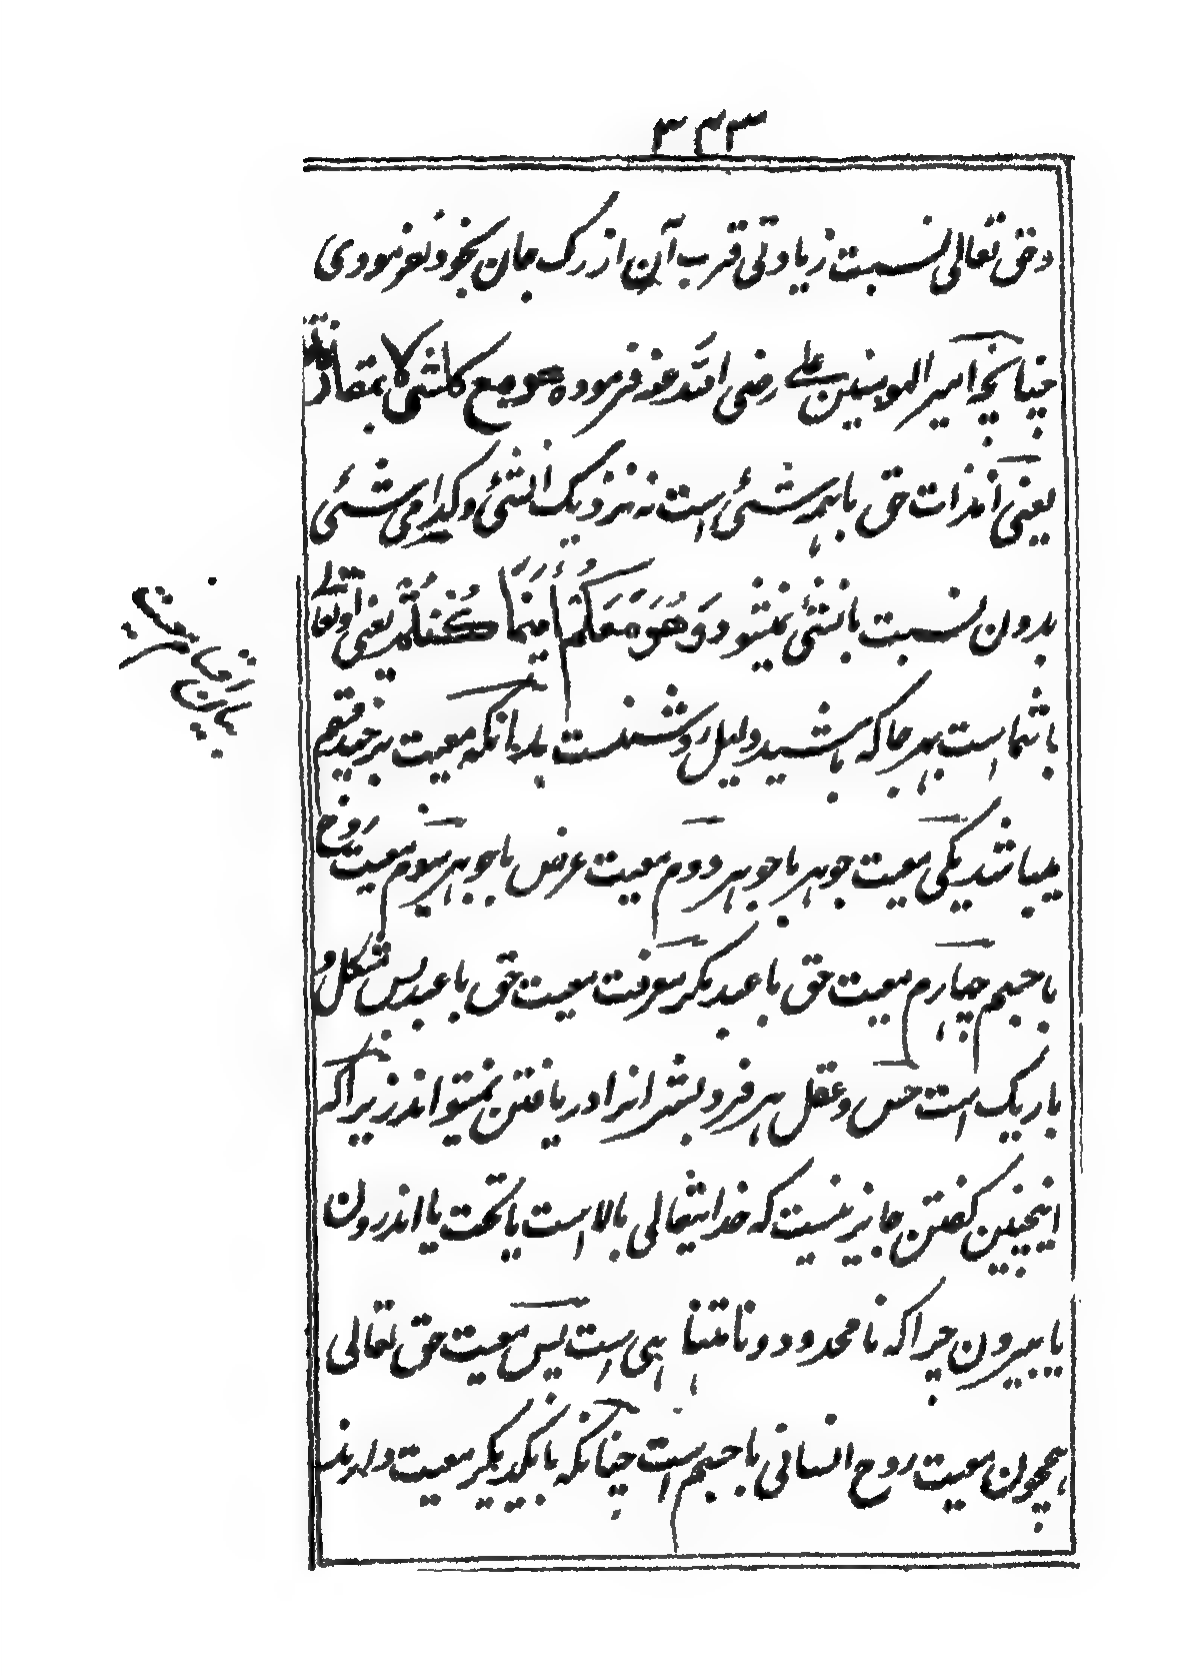 ۳۳۳
وحق تعالی نسبت زیادتی قرب آن از رگ جان بخود نفرمودی
چنانچه امیر المومنین علی رضی الله عنه فرموده هو مع کلشی لا بمقارنة
یعنی آنذات حق با هر شئی است نه نزدیک آنشئی و کدامی شئی
بدون نسبت بانشئی نمیشود وَهُوَ مَعَکُمْ اَیْنَمَا کُنْتُمْ یعنی او تعالی
با شماست بهر جا که باشید دلیل روشنست بدانکه معیت بر چند قسم
میباشد یکی معیت جوهر با جوهر دوم معیت عرض با جوهر سوم معیت روح
با جسم چهارم معیت حق با عبد مگر معرفت معیت حق با عبد بس مشکل و
باریک است حس و عقل هر فرد بشر انرا دریافتن نمیتواند زیرا که
اینچنین گفتن جایز نیست که خدایتعالی بالا است یا تحت یا اندرون
یا بیرون چرا که نا محدود و نا متنا هی است پس معیت حق تعالی
همچون معیت روح انسانی با جسم است چنانکه بایکدیگر معیت دارند
بیان اقسام معیت